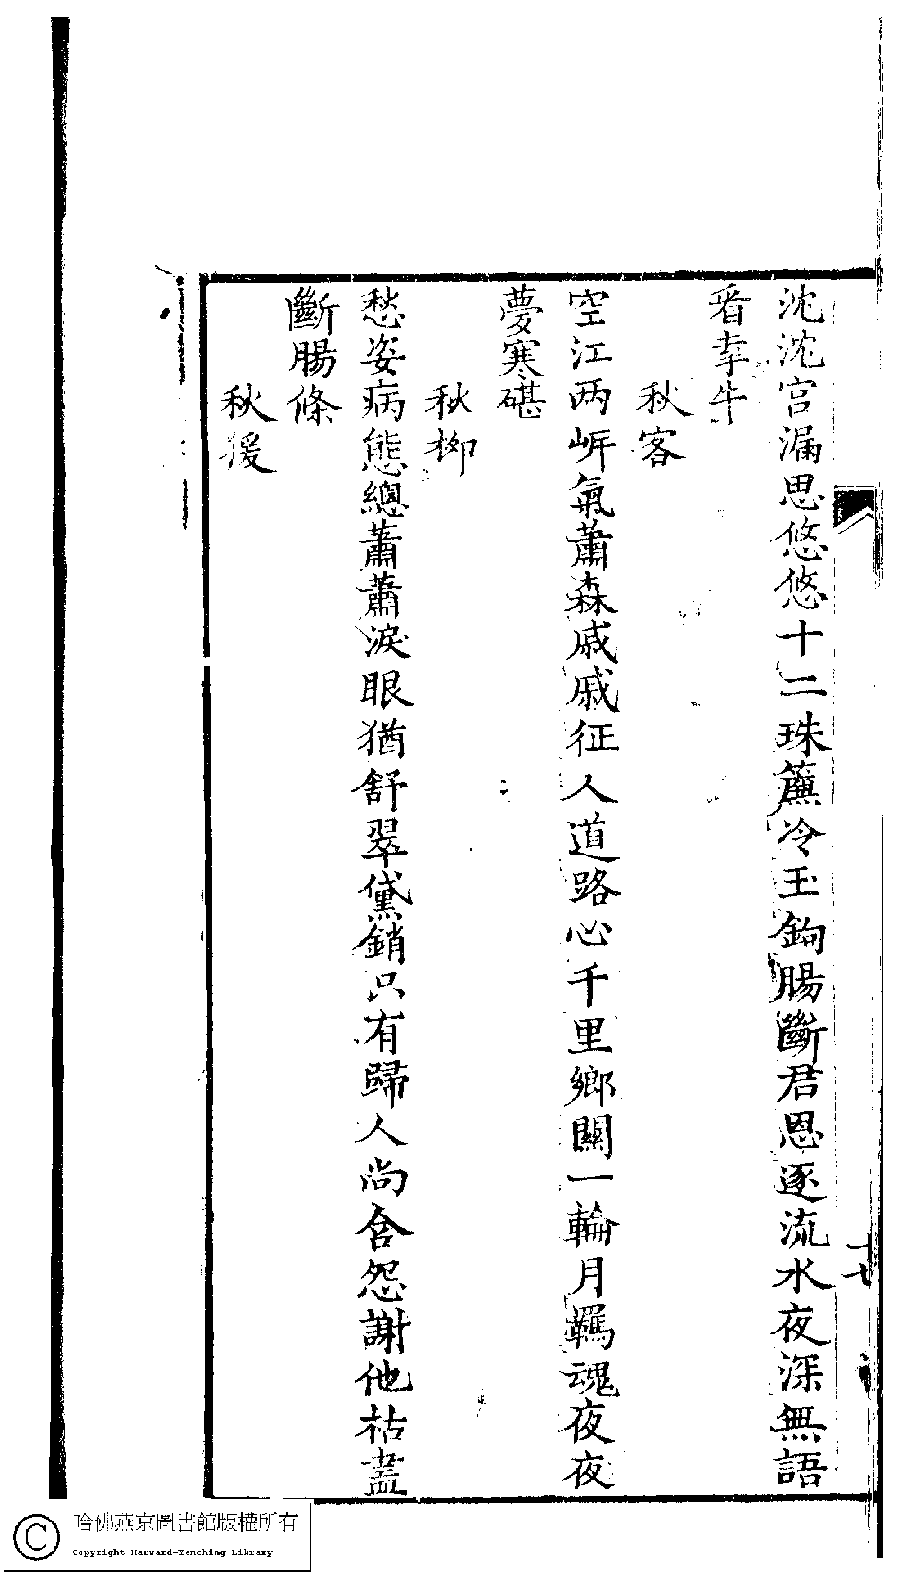 沈沈宮漏思悠悠十二珠簾冷玉鉤腸斷君恩逐流水夜深無語
看牽牛
秋客
空江两岍氣蕭森戚戚征人道路心千里鄉關一輪月羈魂夜夜
夢寒碪
秋柳
愁姿病態總蕭蕭淚眼猶舒翠黛銷只有歸人尚含怨謝他枯盡
斷腸條
秋猨
哈佛燕京圖書館版權所有
Copyright Harvard-Yenching Library